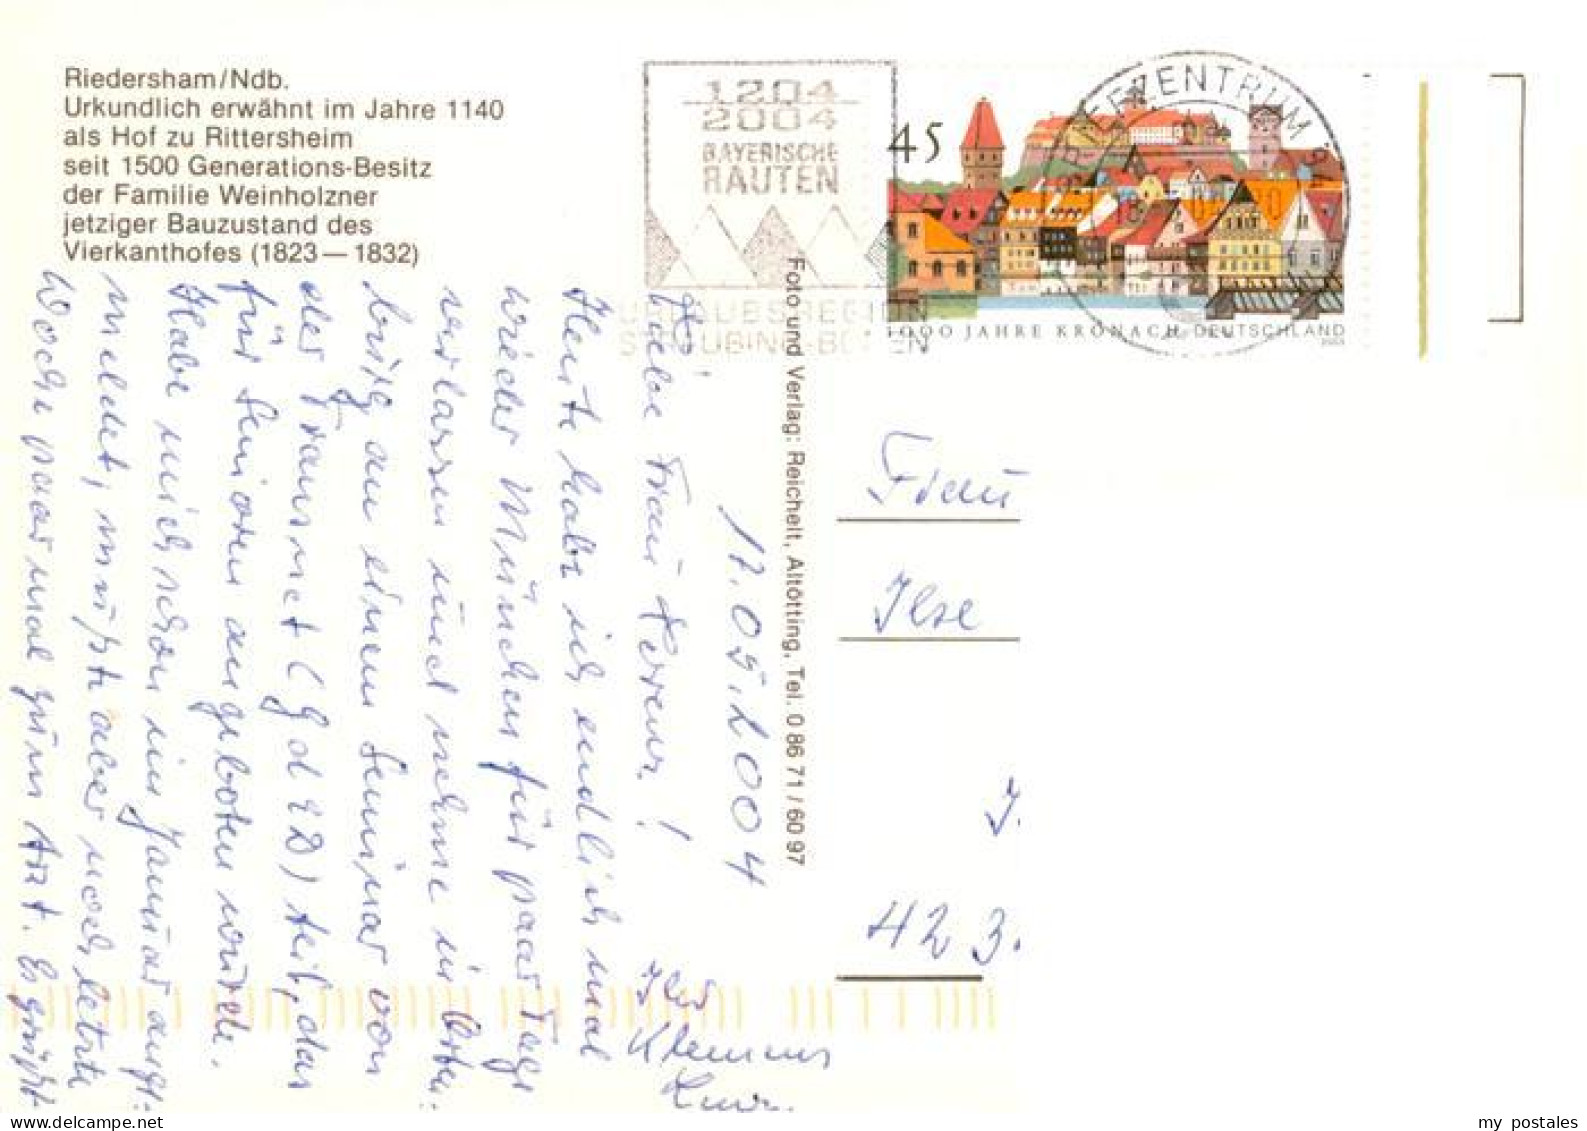 Riedersham/Ndb.
Urkundlich erwähnt im Jahre 1140
als Hof zu Rittersheim
seit 1500 Generations-Besitz
der Familie Weinholzner
jetziger Bauzustand des
Vierkanthofes (1823—1832)
1204
2004
BAYERISCHE
RAUTEN
URLAUBSREGION
STRAUBING-BOGEN
BRIEFZENTRUM
45
1000 JAHRE KRONACH DEUTSCHLAND
Foto und Verlag: Reichelt, Altötting, Tel. 0 86 71 / 60 97
17.05.2004
Frau!
Heute habe ich endlich mal
wieder München für paar Tage
verlassen und nehme in Orten-
burg an einem Seminar von
der Fraunet (GdED) teil, das
für Senioren angeboten wurde.
Habe mich schon im Januar ange-
meldet, mußte aber noch letzte
Woche paar mal zum Arzt. Es grüßt
Frau
Ilse
J.
423.
my postales